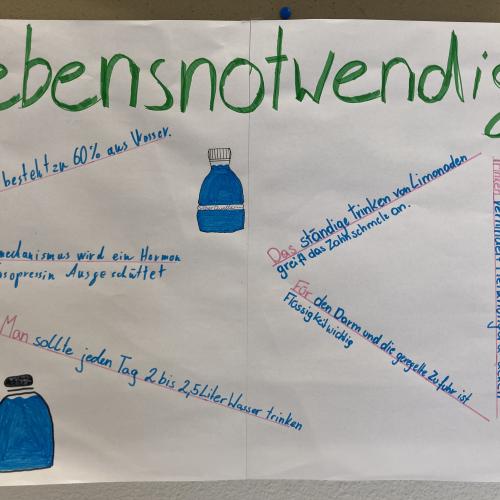 ebensnotwendig
besteht zu 60% aus Wasser.
mechanismus wird ein Hormon
sopressin Ausgeschüttet
Man sollte jeden Tag 2 bis 2,5 Liter Wasser trinken
Das ständige trinken von Limonaden
greift das Zahnschmelz an.
Für den Darm und die geregelte Zufuhr ist
Flüssigkeit wichtig